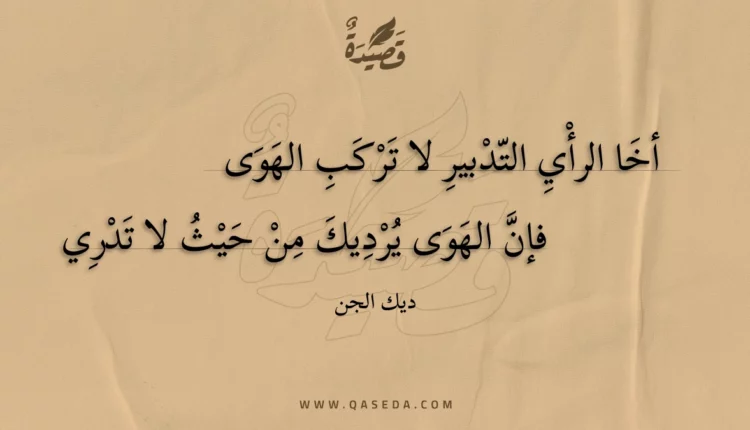 قَصِيدَةٌ
أخَا الرأْيِ التّدْبيرِ لا تَرْكَبِ الهَوَى
فإنَّ الهَوَى يُرْدِيكَ مِنْ حَيْثُ لا تَدْرِي
ديك الجن
WWW.QASEDA.COM